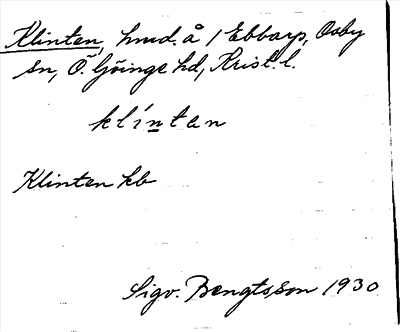 Klinten, hmd. å 1 Ebbarp, Osby
sn, Ö. Göinge hd, Krist. l.
klíntan
Klinten kb
Sigv. Bengtsson 1930